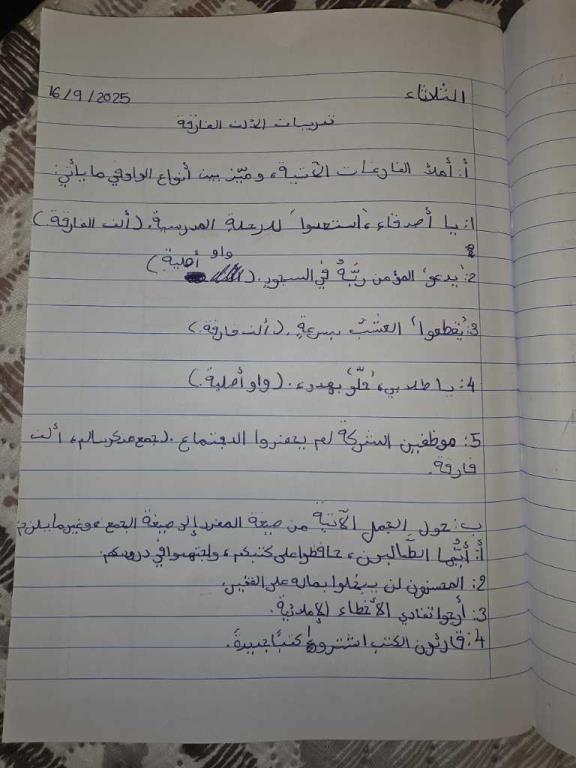 الثلاثاء 16/9/2025
تدريبات الألف الفارقة
أ: أملأ الفارغات الآتية، وميّز بين أنواع الواو في ما يأتي:
1: يا أصدقاء، "استعدوا" للرحلة المدرسية. (ألف الفارقة.)
2: "يدعو" المؤمن ربَّهُ في السجود. (واو أصلية)
3: "يُقطعوا" العشبُ بسرعةٍ. (ألف فارقة.)
4: يا طلابي، "حَلّو" بهدوء. (واو أصلية.)
5: موظفين الشركة لم يحضروا الاجتماع. (جمع مذكر سالم، ألف
فارقة.
ب: حول الجمل الآتية من صيغة المفرد إلى صيغة الجمع، وغير ما يلزم
أ: أيُّها الطَّالبون، حافظوا على كتبكم، واجتهدوا في دروسكم.
2: المحسنون لن يبخلوا بماله على الفقير.
3: أرجوا تفادي الأخطاء الإملائية.
4: قارئون الكتب اشتروا كتبًا جديدةً.